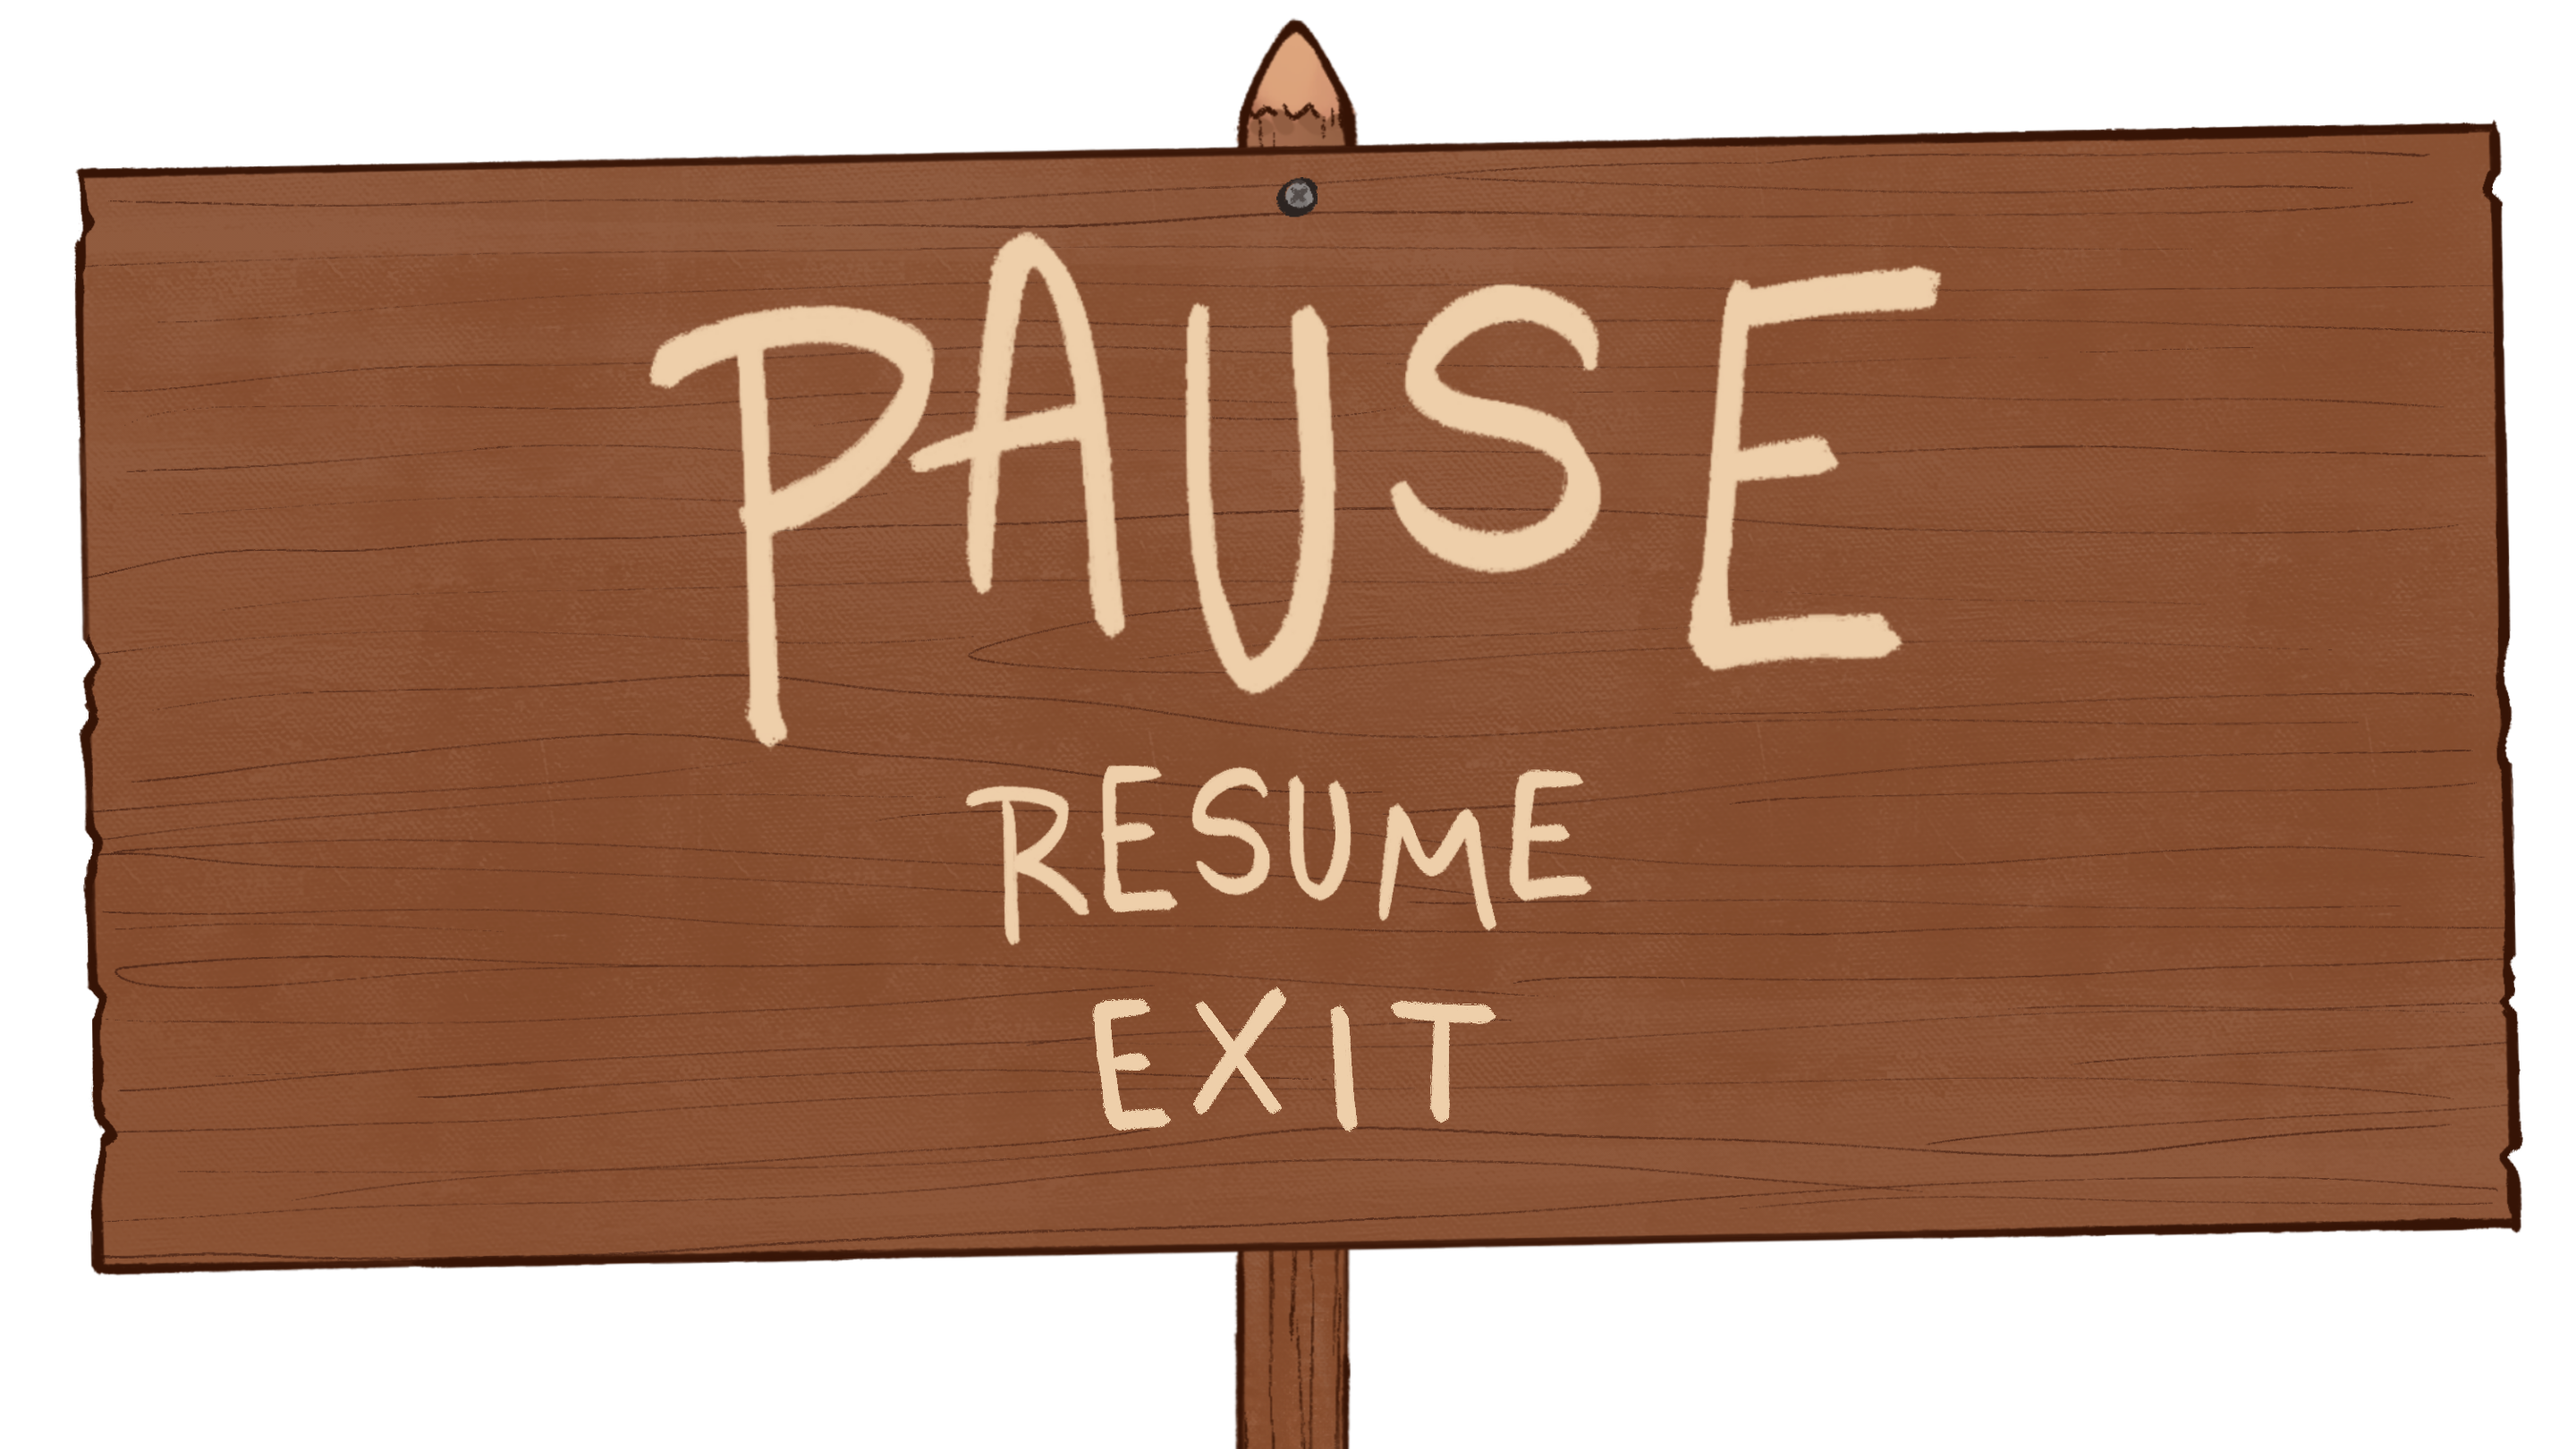 PAUSE
RESUME
EXIT